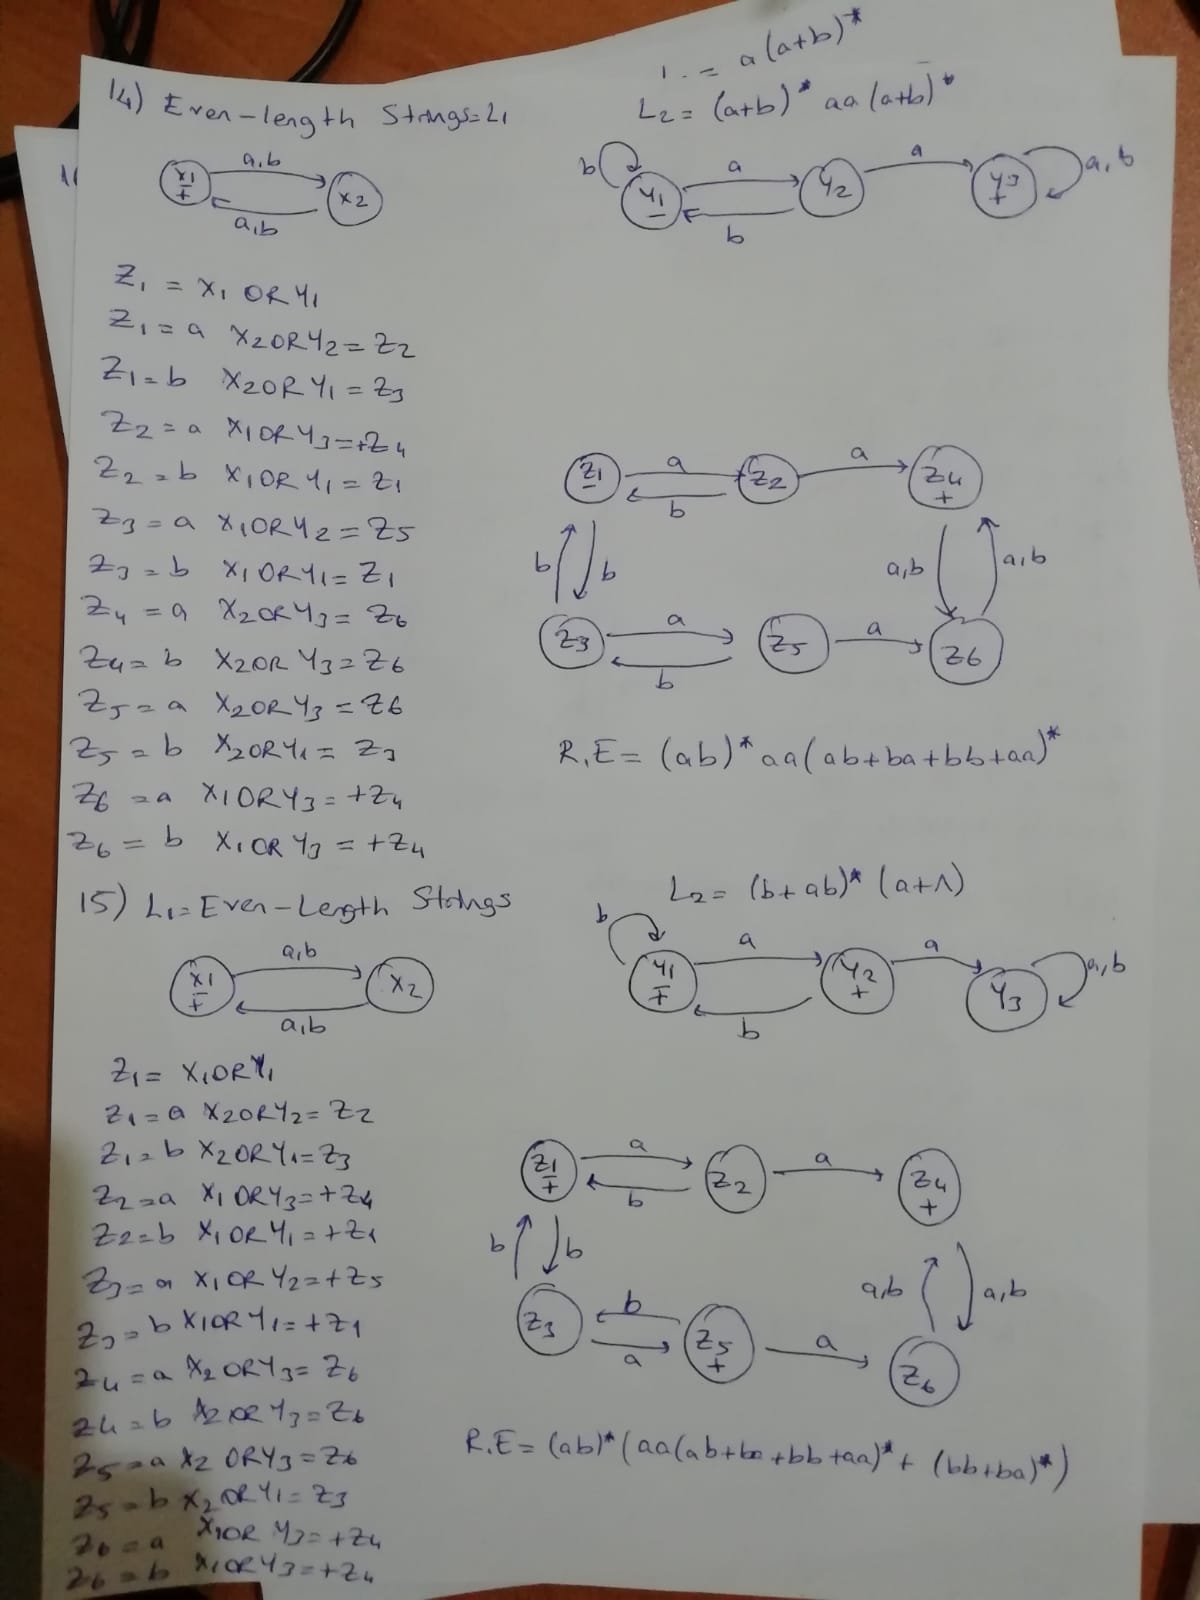 = a(a+b)*
14) Even-length Strings=L1
L2 = (a+b)* aa (a+b)*
x1 ± a,b x2 a,b
b y1 - a y2 a y3 + a,b b
Z1 = X1 OR Y1
Z1 = a X2ORY2 = Z2
Z1 = b X2OR Y1 = Z3
Z2 = a X1ORY3 = +Z4
Z2 = b X1OR Y1 = Z1
Z3 = a X1ORY2 = Z5
Z3 = b X1ORY1 = Z1
Z4 = a X2ORY3 = Z6
Z4 = b X2OR Y3 = Z6
Z5 = a X2ORY3 = Z6
Z5 = b X2ORY1 = Z3
Z6 = a X1ORY3 = +Z4
Z6 = b X1OR Y3 = +Z4
Z1 - a Z2 a Z4 +
b
b b a,b a,b
Z3 a Z5 a Z6
b
R.E = (ab)* aa(ab+ba+bb+aa)*
15) L1=Even-Length Strings
L2 = (b+ab)* (a+Λ)
x1 ± a,b x2 a,b
b y1 ∓ a y2 + a y3 a,b b
Z1 = X1ORY1
Z1 = a X2ORY2 = Z2
Z1 = b X2ORY1 = Z3
Z2 = a X1 ORY3 = +Z4
Z2 = b X1 ORY1 = +Z1
Z3 = a X1 OR Y2 = +Z5
Z3 = b X1OR Y1 = +Z1
Z4 = a X2 ORY3 = Z6
Z4 = b X2 OR Y3 = Z6
Z5 = a X2 ORY3 = Z6
Z5 = b X2 ORY1 = Z3
Z6 = a X1OR Y3 = +Z4
Z6 = b X1ORY3 = +Z4
Z1 ± a Z2 a Z4 +
b
b b a,b a,b
Z3 b Z5 + a Z6
a
R.E = (ab)* (aa(ab+ba+bb+aa)* + (bb+ba)*)